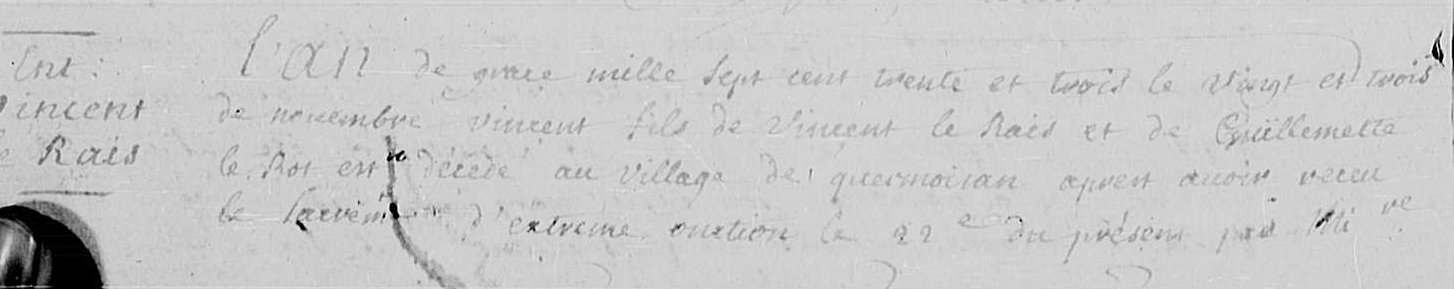 Ent:
vincent
le Rais
l'an de grace mille sept cent trente et trois le vingt et trois
de novembre vincent fils de vincent le Rais et de Guillemette
le Ros est décédé au village de quermoisan apres avoir receu
le sacrem d'extreme onction le 22e du présent par Mi re